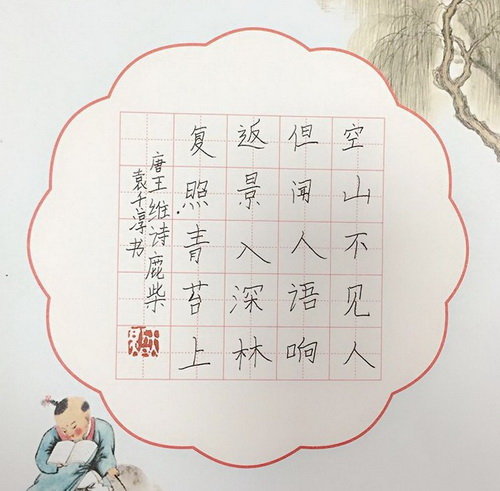 空山不见人
但闻人语响
返景入深林
复照青苔上
唐王维诗鹿柴
袁千淳书